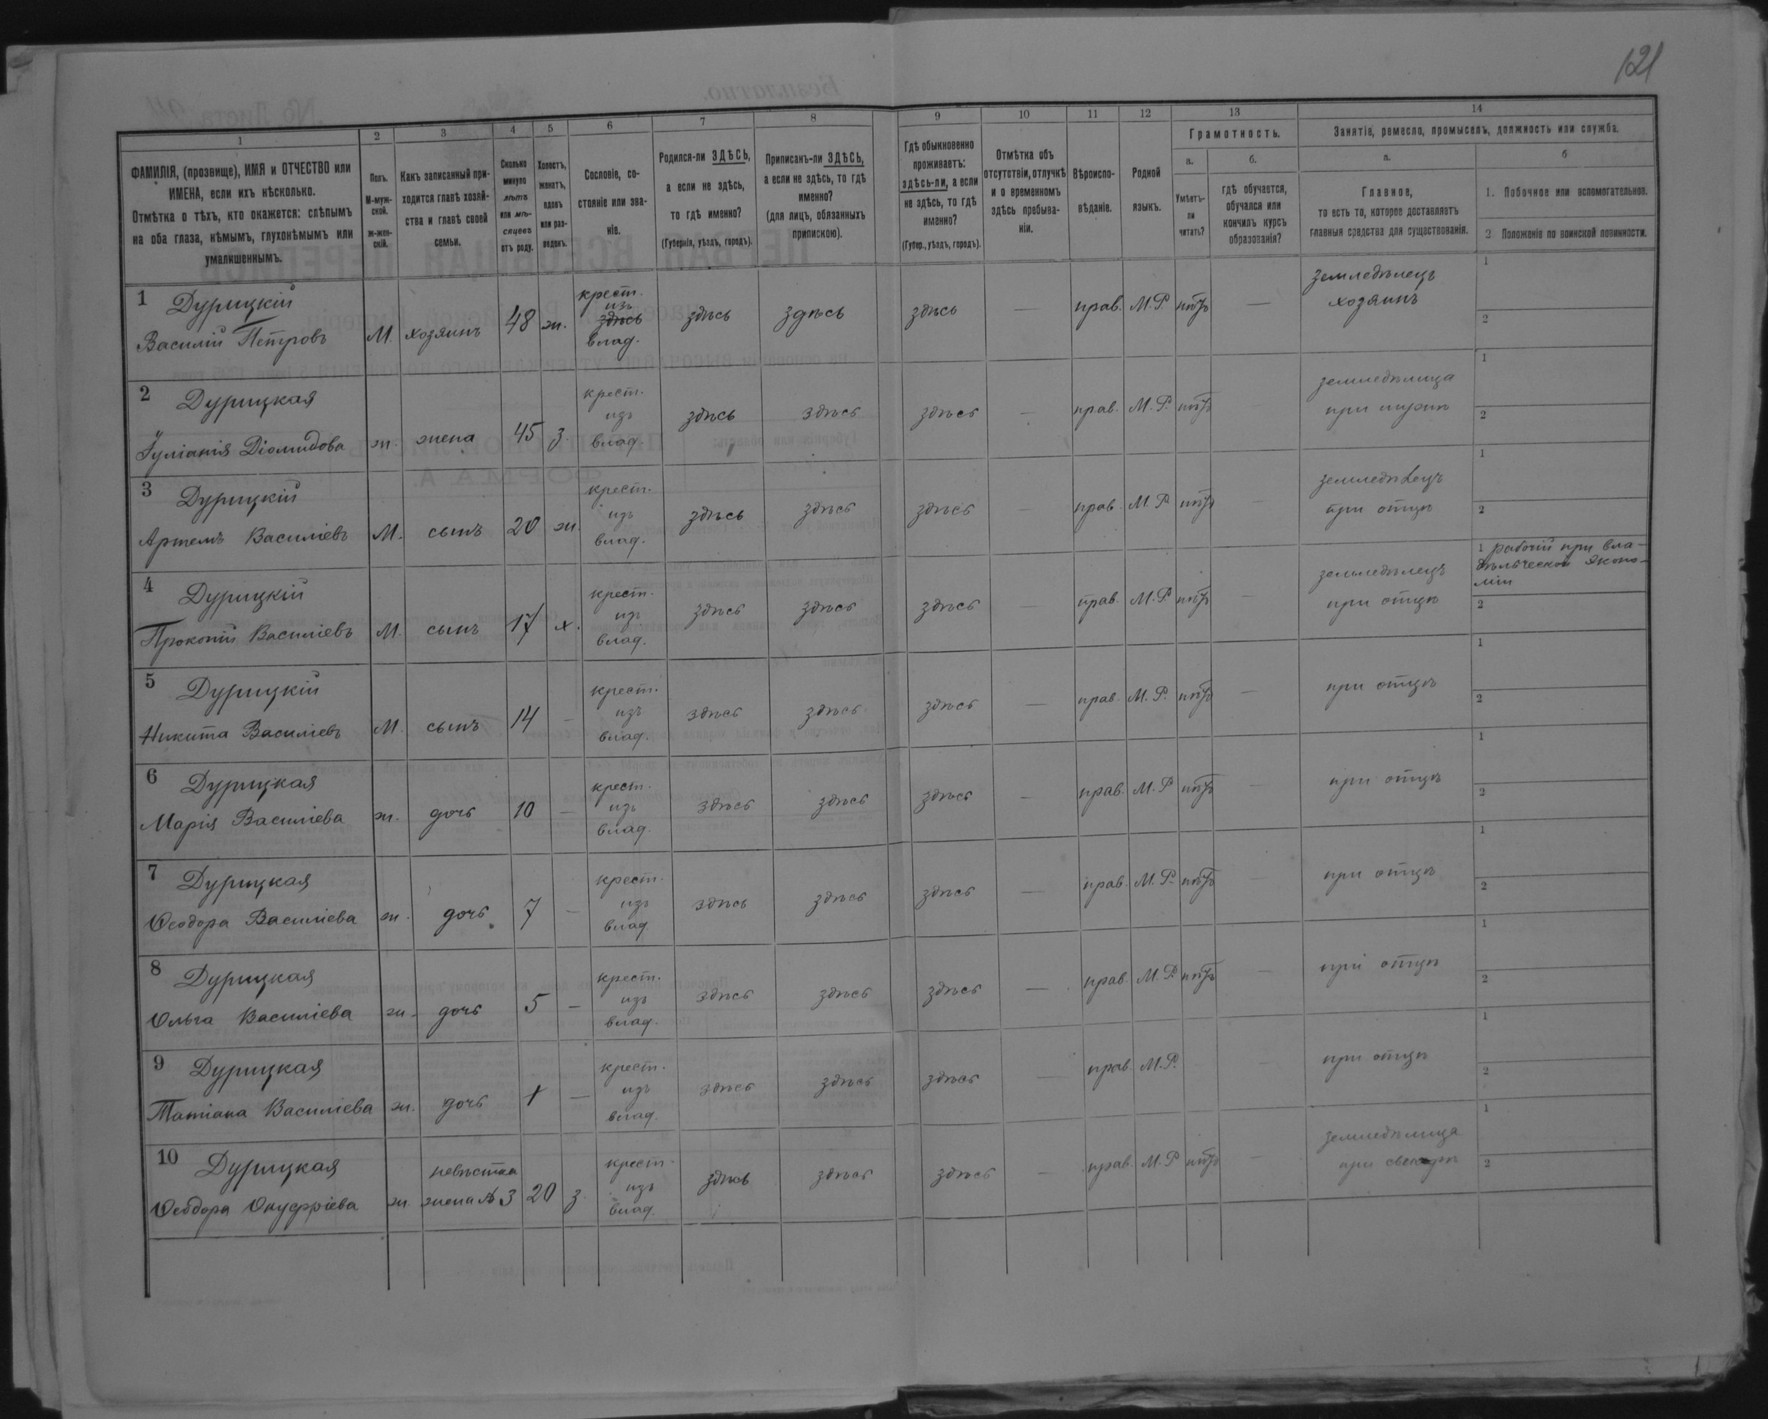 121
1 2 3 4 5 6 7 8 9 10 11 12 13 14
ФАМИЛІЯ, (прозвище), ИМЯ и ОТЧЕСТВО или
ИМЕНА, если ихъ нѣсколько.
Отмѣтка о тѣхъ, кто окажется: слѣпымъ
на оба глаза, нѣмымъ, глухонѣмымъ или
умалишеннымъ.
Полъ.
М-муж-
ской.
ж-жен-
скій.
Какъ записанный при-
ходится главѣ хозяй-
ства и главѣ своей
семьи.
Сколько
минуло
лѣтъ
или мѣ-
сяцевъ
отъ роду.
Холостъ,
женатъ,
вдовъ
или раз-
веденъ.
Сословіе, со-
стояніе или зва-
ніе.
Родился-ли ЗДѢСЬ,
а если не здѣсь,
то гдѣ именно?
(Губернія, уѣздъ, городъ).
Приписанъ-ли ЗДѢСЬ,
а если не здѣсь, то гдѣ
именно?
(для лицъ, обязанныхъ
припискою).
Гдѣ обыкновенно
проживаетъ:
здѣсь-ли, а если
не здѣсь, то гдѣ
именно?
(Губер., уѣздъ, городъ).
Отмѣтка объ
отсутствіи, отлучкѣ
и о временномъ
здѣсь пребыва-
ніи.
Вѣроиспо-
вѣданіе.
Родной
языкъ.
Грамотность.
а.
Умѣетъ-
ли
читать?
б.
гдѣ обучается,
обучался или
кончилъ курсъ
образованія?
Занятіе, ремесло, промыселъ, должность или служба.
а.
Главное,
то есть то, которое доставляетъ
главныя средства для существованія.
б
1. Побочное или вспомогательное.
2 Положеніе по воинской повинности.
1 Дурицкій
Василій Петровъ М. хозяинъ 48 ж. крест. изъ здѣсь влад. здѣсь здѣсь здѣсь — прав. М.Р. нѣтъ — земледѣлецъ хозяинъ 1 2
2 Дурицкая
Іуліанія Діомидова ж. жена 45 з. крест. изъ влад. здѣсь здѣсь здѣсь — прав. М.Р. нѣтъ земледѣлица при мужѣ 1 2
3 Дурицкій
Артемъ Василіевъ М. сынъ 20 ж. крест. изъ влад. здѣсь здѣсь здѣсь — прав. М.Р. нѣтъ — земледѣлецъ при отцѣ 1 2
4 Дурицкій
Прокопій Василіевъ М. сынъ 17 х. крест. изъ влад. здѣсь здѣсь здѣсь — прав. М.Р. нѣтъ — земледѣлецъ при отцѣ 1 рабочій при вла-
дѣльческой эконо-
міи
2
5 Дурицкій
Никита Василіевъ М. сынъ 14 — крест. изъ влад. здѣсь здѣсь здѣсь — прав. М.Р. нѣтъ — при отцѣ 1 2
6 Дурицкая
Марія Василіева ж. дочь 10 — крест. изъ влад. здѣсь здѣсь здѣсь — прав. М.Р. нѣтъ — при отцѣ 1 2
7 Дурицкая
Ѳеодора Василіева ж. дочь 7 — крест. изъ влад. здѣсь здѣсь здѣсь — прав. М.Р. нѣтъ — при отцѣ 1 2
8 Дурицкая
Ольга Василіева ж. дочь 5 — крест. изъ влад. здѣсь здѣсь здѣсь — прав. М.Р. нѣтъ — при отцѣ 1 2
9 Дурицкая
Татіана Василіева ж. дочь — крест. изъ влад. здѣсь здѣсь здѣсь — прав. М.Р. — при отцѣ 1 2
10 Дурицкая
Ѳеодора Онуфріева ж. невѣстка жена № 3 20 з. крест. изъ влад. здѣсь здѣсь здѣсь — прав. М.Р. нѣтъ — земледѣлица при свекрѣ 1 2